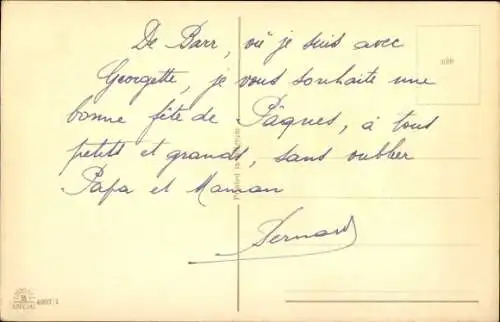 De Barr, où je suis avec
Georgette, je vous souhaite une
bonne fête de Pâques, à tous
petits et grands, sans oublier
Papa et Maman
Bernard
4997/1